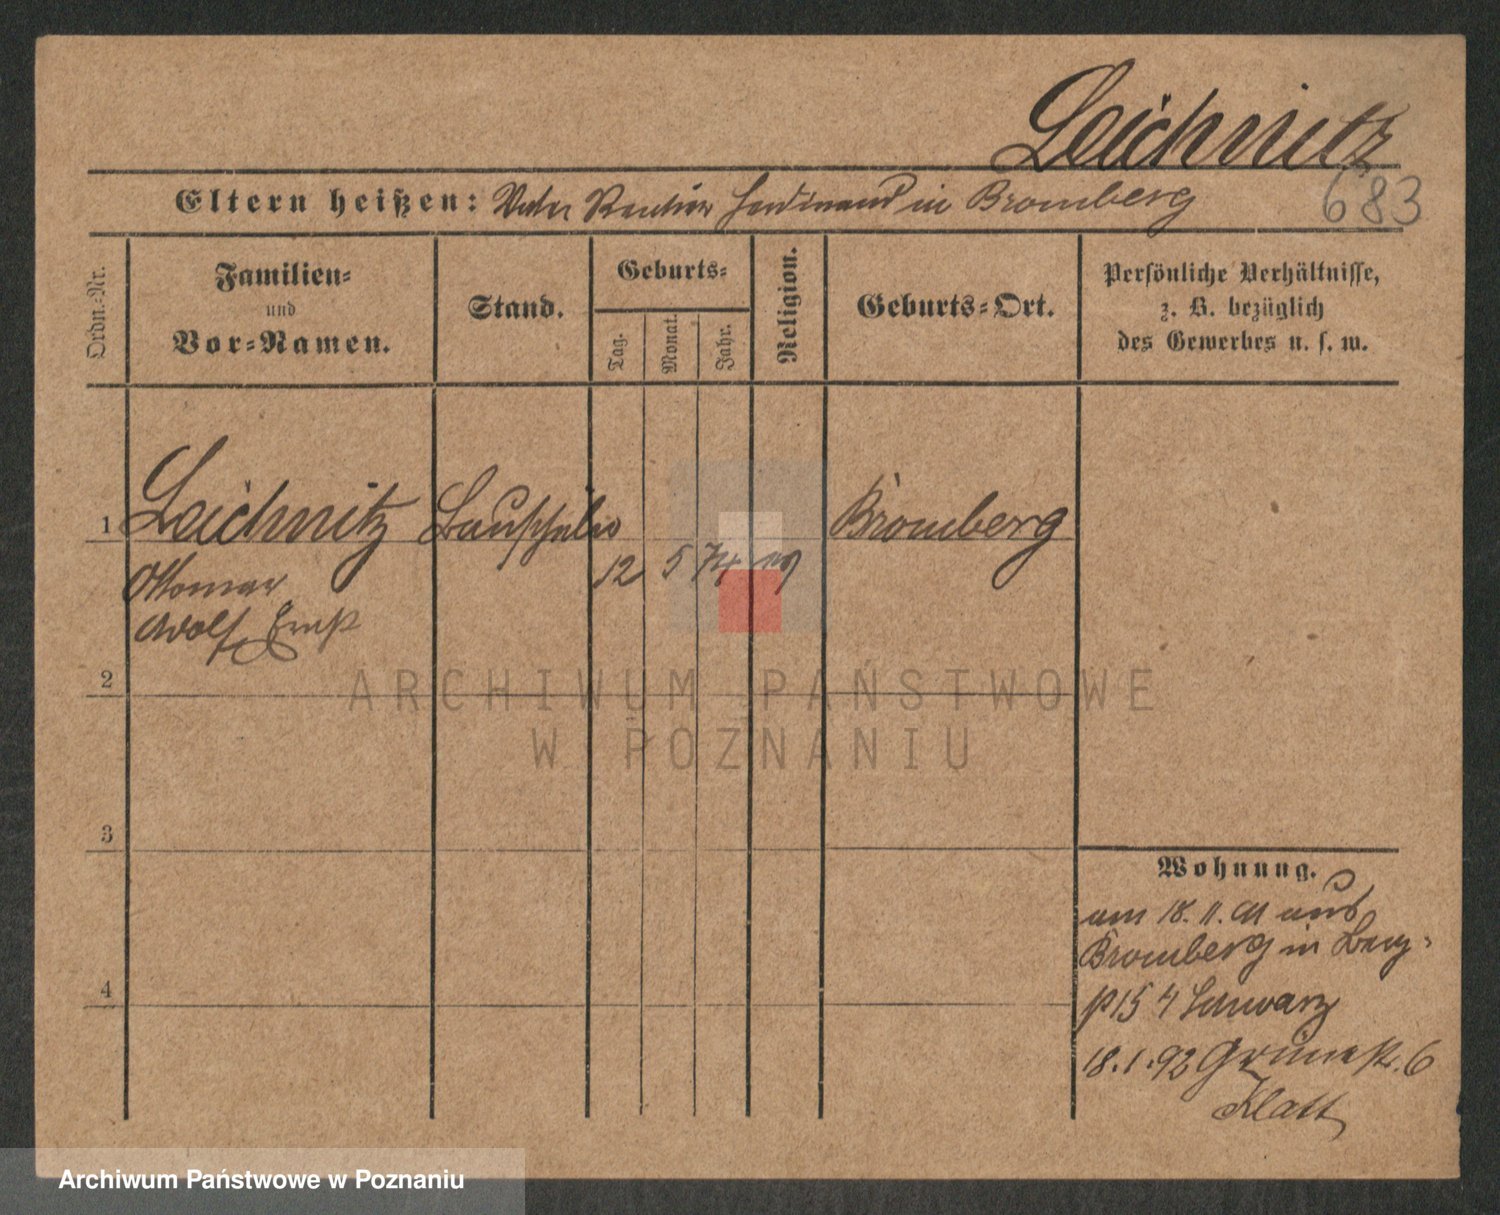 Leichnitz
683
Eltern heißen: Vater Rentier Ferdinand in Bromberg
Ordn.-Nr.
Familien-
und
Vor-Namen.
Stand.
Geburts-
Tag.
Monat.
Jahr.
Religion.
Geburts-Ort.
Persönliche Verhältnisse,
z. B. bezüglich
des Gewerbes u. s. w.
1
Leichnitz
Bauschüler
Bromberg
12 5 74
Ottomar
Adolf Ernst
2
ARCHIWUM PAŃSTWOWE
W POZNANIU
3
Wohnung.
am 18. 11. 91 aus
Bromberg in
4
15 Schwarz
18.1.92 Grünestr. 6
Klatt
Archiwum Państwowe w Poznaniu